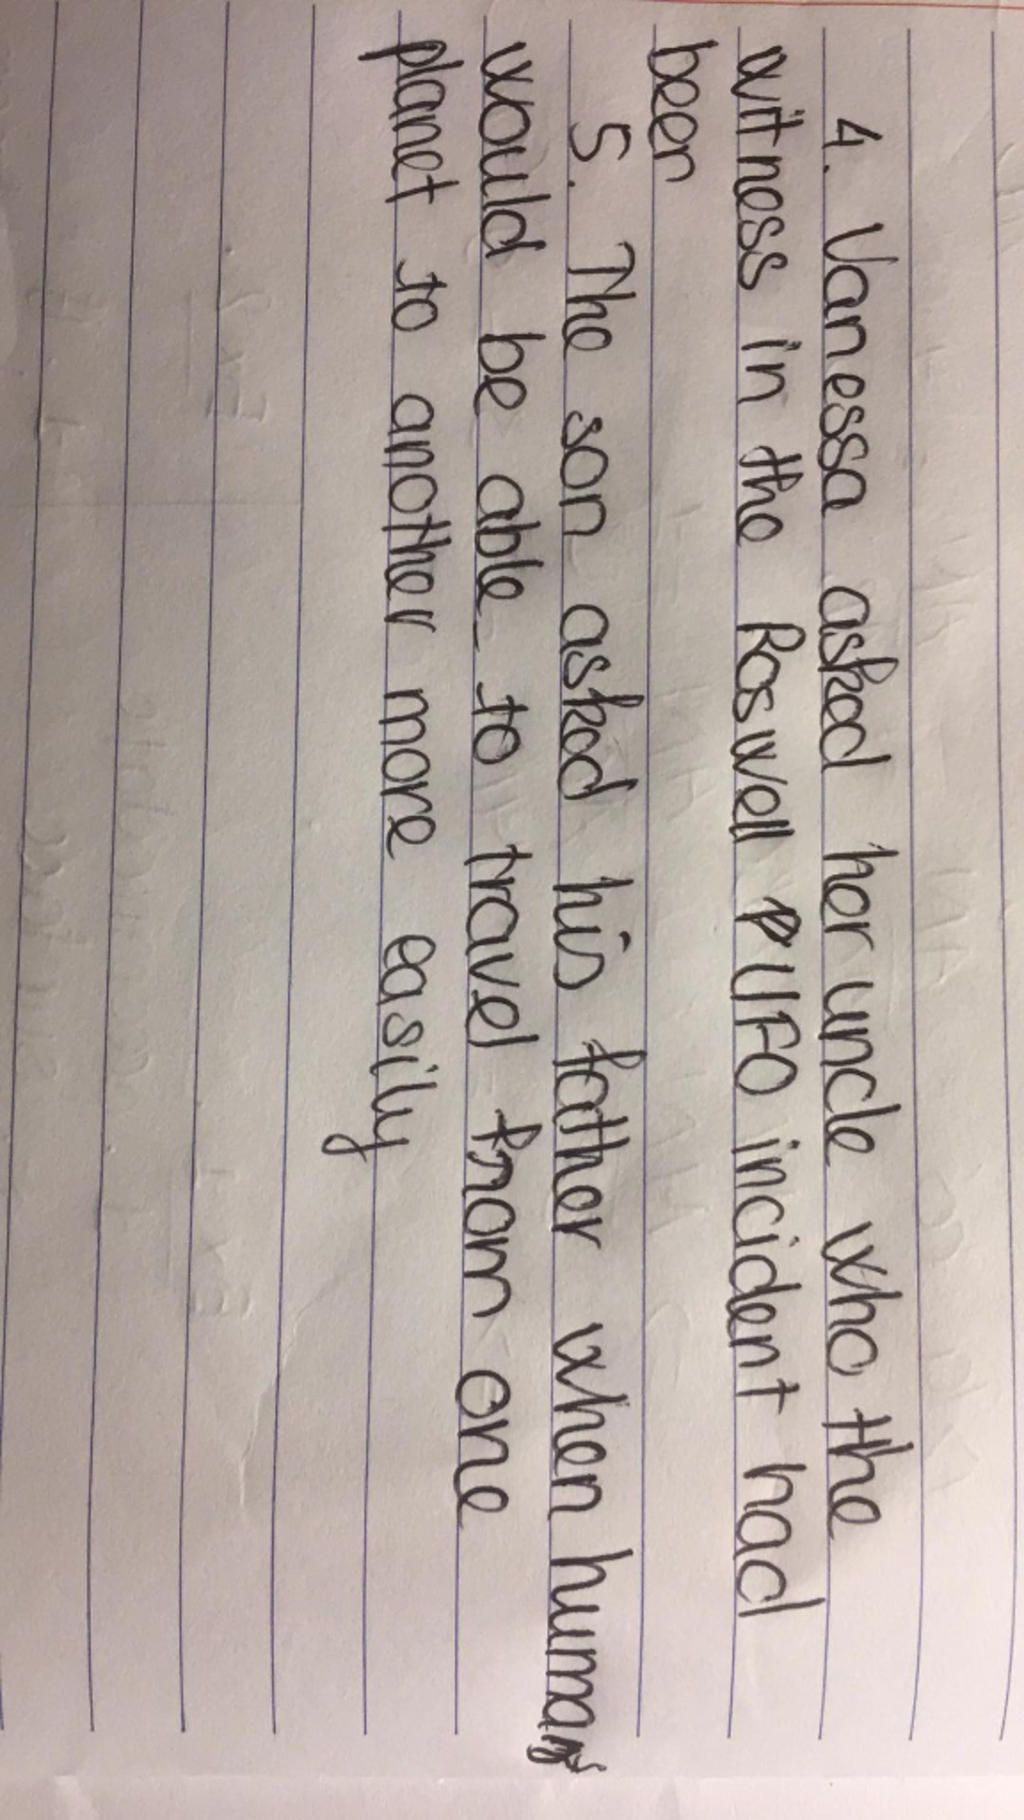 4. Vanessa asked her uncle who the
witness in the Roswell UFO incident had
been
5. The son asked his father when humans
would be able to travel from one
planet to another more easily